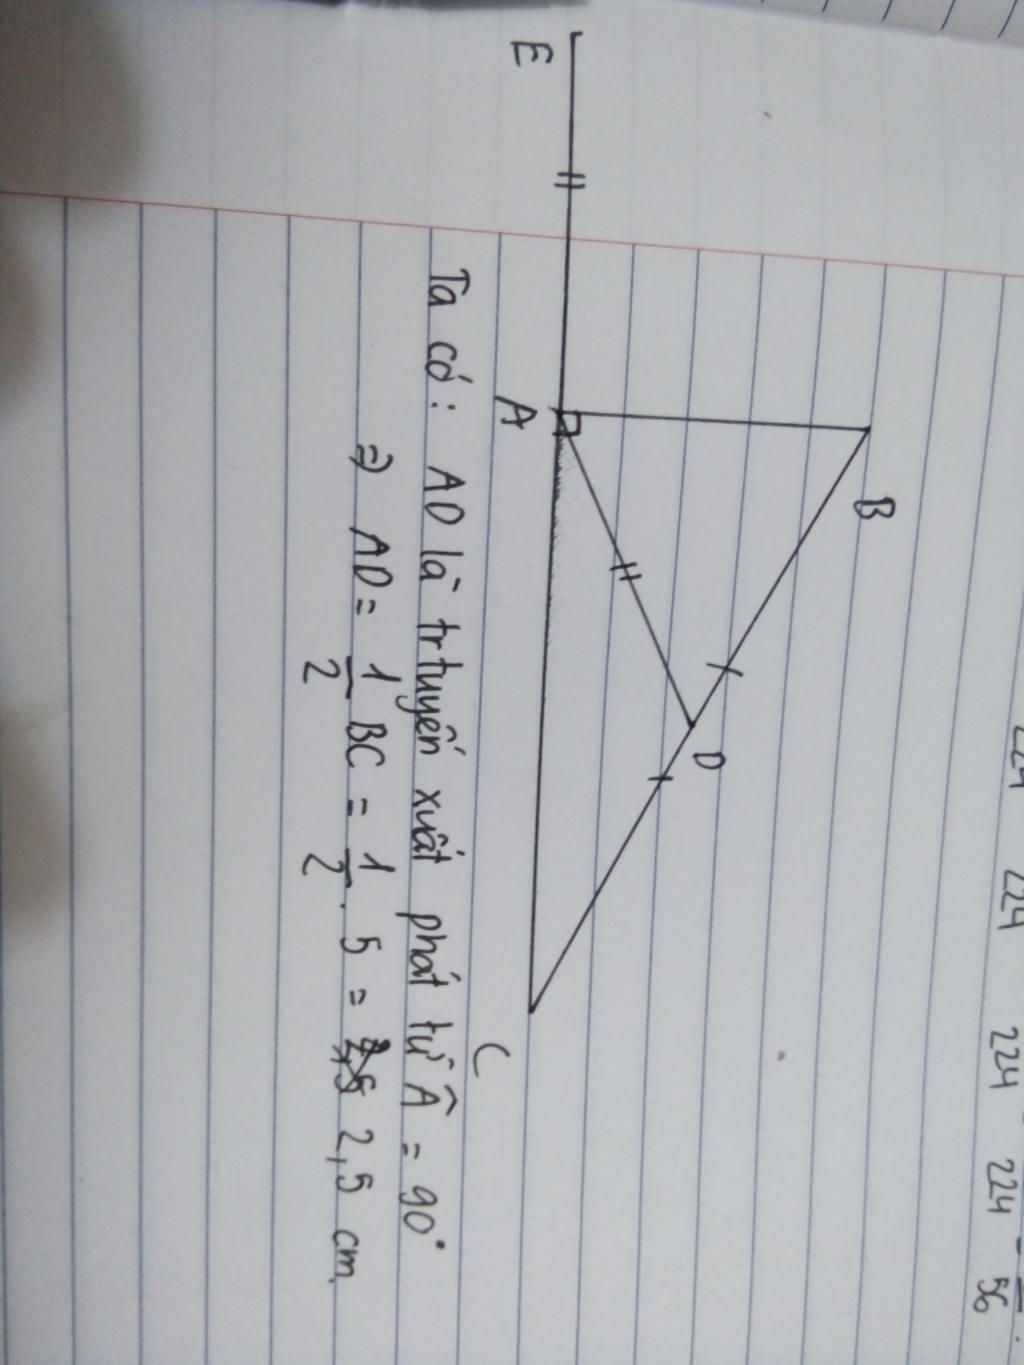 224 224 224 224 56
E A B D C
Ta có: AD là trtuyến xuất phát từ Â = 90°
=> AD = 1/2 BC = 1/2 . 5 = 2,5 cm